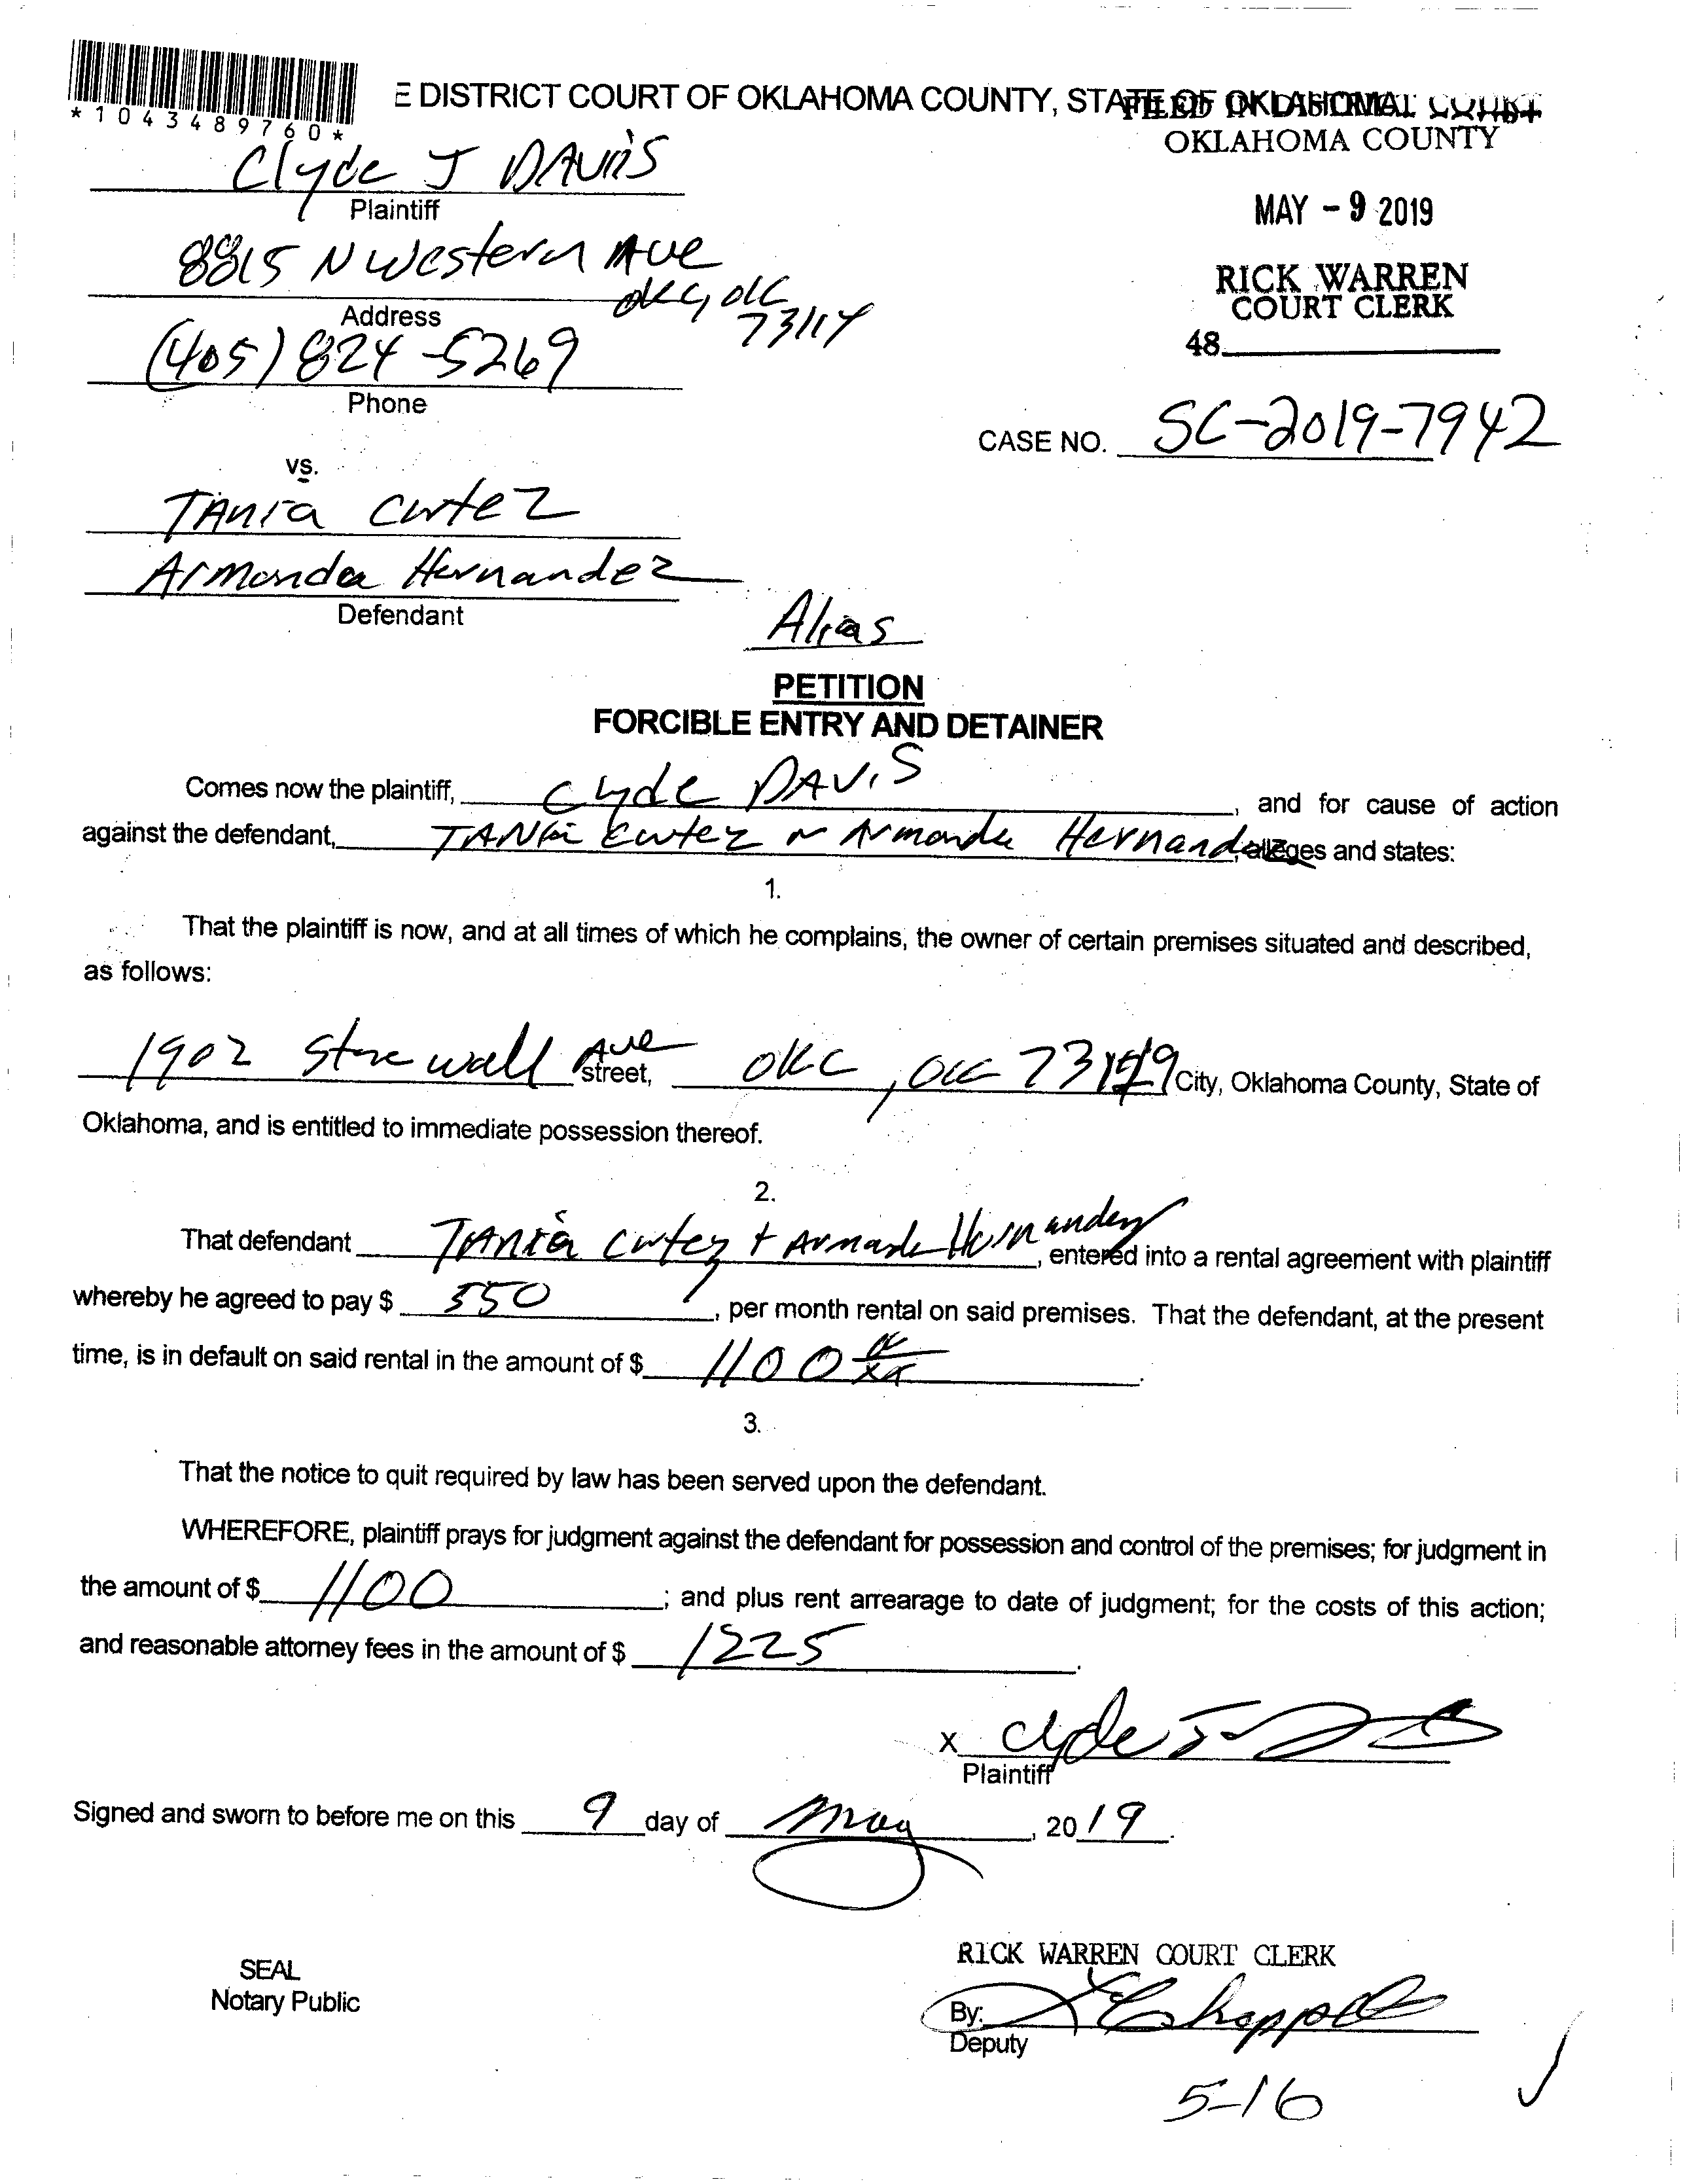 *1043489760*
E DISTRICT COURT OF OKLAHOMA COUNTY, STATE OF OKLAHOMA
FILED IN DISTRICT COURT
OKLAHOMA COUNTY
MAY - 9 2019
RICK WARREN
COURT CLERK
48
Clyde J DAVIS
Plaintiff
8815 N Western Ave
OKC, OK
73114
Address
(405) 824-5269
Phone
CASE NO. SC-2019-7942
vs.
TANIA Cortez
Armanda Hernandez
Defendant
Alias
PETITION
FORCIBLE ENTRY AND DETAINER
Comes now the plaintiff, Clyde DAVIS, and for cause of action
against the defendant, TANIA Cortez Armanda Hernandez, alleges and states:
1.
That the plaintiff is now, and at all times of which he complains, the owner of certain premises situated and described,
as follows:
1902 Stonewall Ave street, OKC, City, Oklahoma County, State of
Oklahoma, and is entitled to immediate possession thereof.
2.
That defendant TANIA Cortez + Armanda Hernandez, entered into a rental agreement with plaintiff
whereby he agreed to pay $ 550, per month rental on said premises. That the defendant, at the present
time, is in default on said rental in the amount of $ 1100.
3.
That the notice to quit required by law has been served upon the defendant.
WHEREFORE, plaintiff prays for judgment against the defendant for possession and control of the premises; for judgment in
the amount of $ 1100; and plus rent arrearage to date of judgment; for the costs of this action;
and reasonable attorney fees in the amount of $ 1225.
x Clyde J
Plaintiff
Signed and sworn to before me on this 9 day of May, 2019.
SEAL
Notary Public
RICK WARREN COURT CLERK
By:
Deputy
5-16